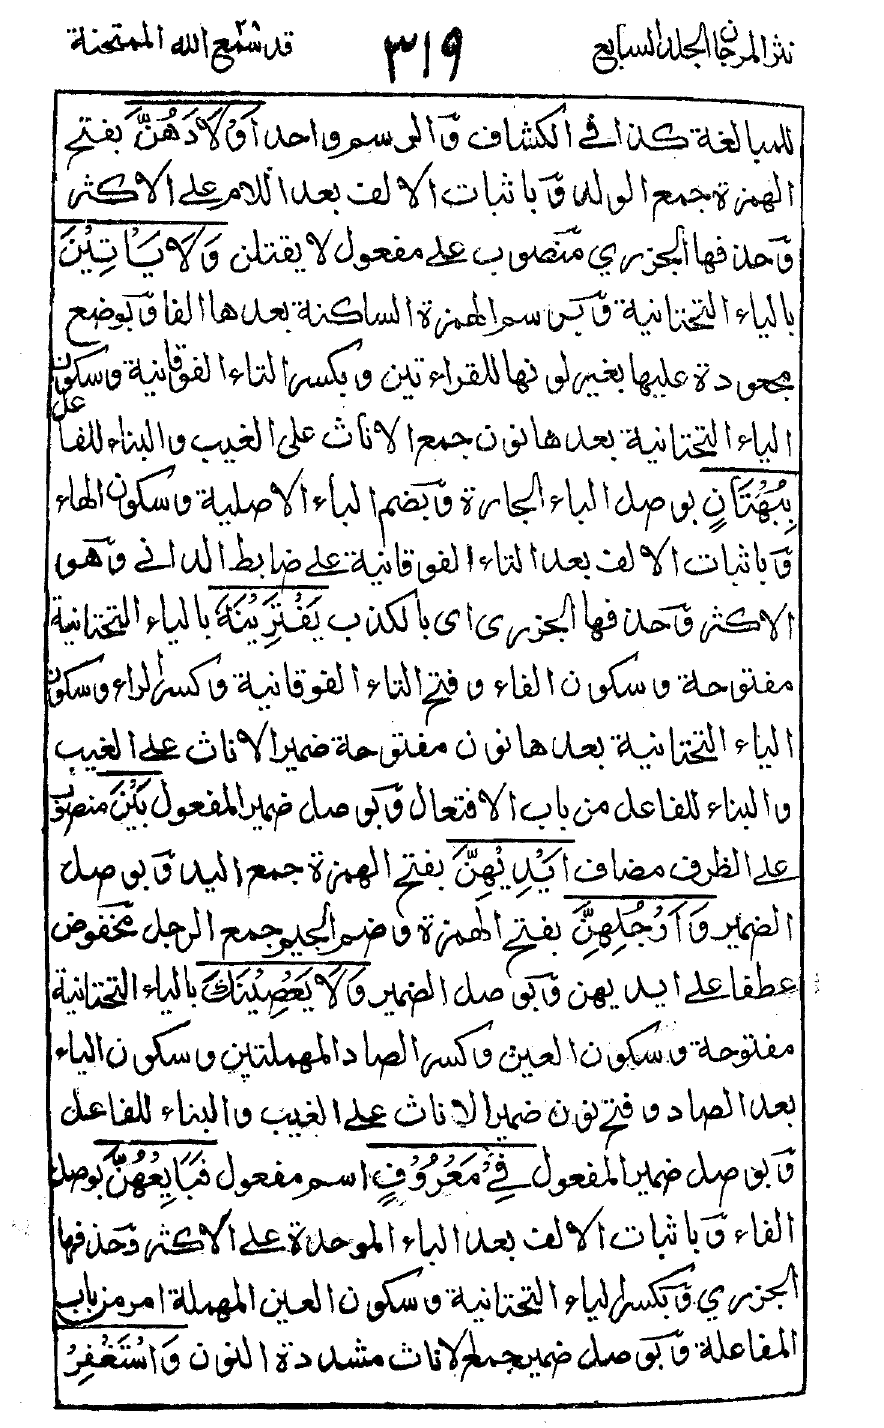 نثر المرجان الجلد السابع ٣١٩ قد سمع الله ٢٨ الممتحنة
للمبالغة كذا في الكشاف وَالرسم واحد اَوْلَادَهُنَّ بفتح
الهمزة جمع الولد وَباثبات الالف بعد اللام على الاكثر
وَحذفها الجزري منصوب على مفعول لا يقتلن وَلَا يَاْتِيْنَ
بالياء التحتانية وَبرسم الهمزة الساكنة بعدها الفا وَبوضع
مجعودة عليها بغير لونها للقراءتين وبكسر التاء الفوقانية وسكون
الياء التحتانية بعدها نون جمع الاناث على الغيب والبناء للفاعل
بِبُهْتَانٍ بوصل الباء الجارة وَبضم الباء الاصلية وسكون الهاء
وَباثبات الالف بعد التاء الفوقانية على ضابط الداني وَهو
الاكثر وَحذفها الجزري اى بالكذب يَفْتَرِيْنَهٗ بالياء التحتانية
مفتوحة وسكون الفاء وفتح التاء الفوقانية وكسر الراء وسكون
الياء التحتانية بعدها نون مفتوحة ضمير الاناث على الغيب
والبناء للفاعل من باب الافتعال وَبوصل ضمير المفعول بَيْنَ منصوب
على الظرف مضاف اَيْدِيْهِنَّ بفتح الهمزة جمع اليد وَبوصل
الضمير وَاَرْجُلِهِنَّ بفتح الهمزة وضم الجيم جمع الرجل مخفوض
عطفا على ايديهن وَبوصل الضمير وَلَا يَعْصِيْنَكَ بالياء التحتانية
مفتوحة وسكون العين وكسر الصاد المهملتين وسكون الياء
بعد الصاد وفتح نون ضمير الاناث على الغيب والبناء للفاعل
وَبوصل ضمير المفعول فِيْ مَعْرُوْفٍ اسم مفعول فَبَايِعْهُنَّ بوصل
الفاء وَباثبات الالف بعد الباء الموحدة على الاكثر وَحذفها
الجزري وَبكسر الياء التحتانية وسكون العين المهملة امر من باب
المفاعلة وَبوصل ضمير جمع الاناث مشددة النون وَاسْتَغْفِرْ